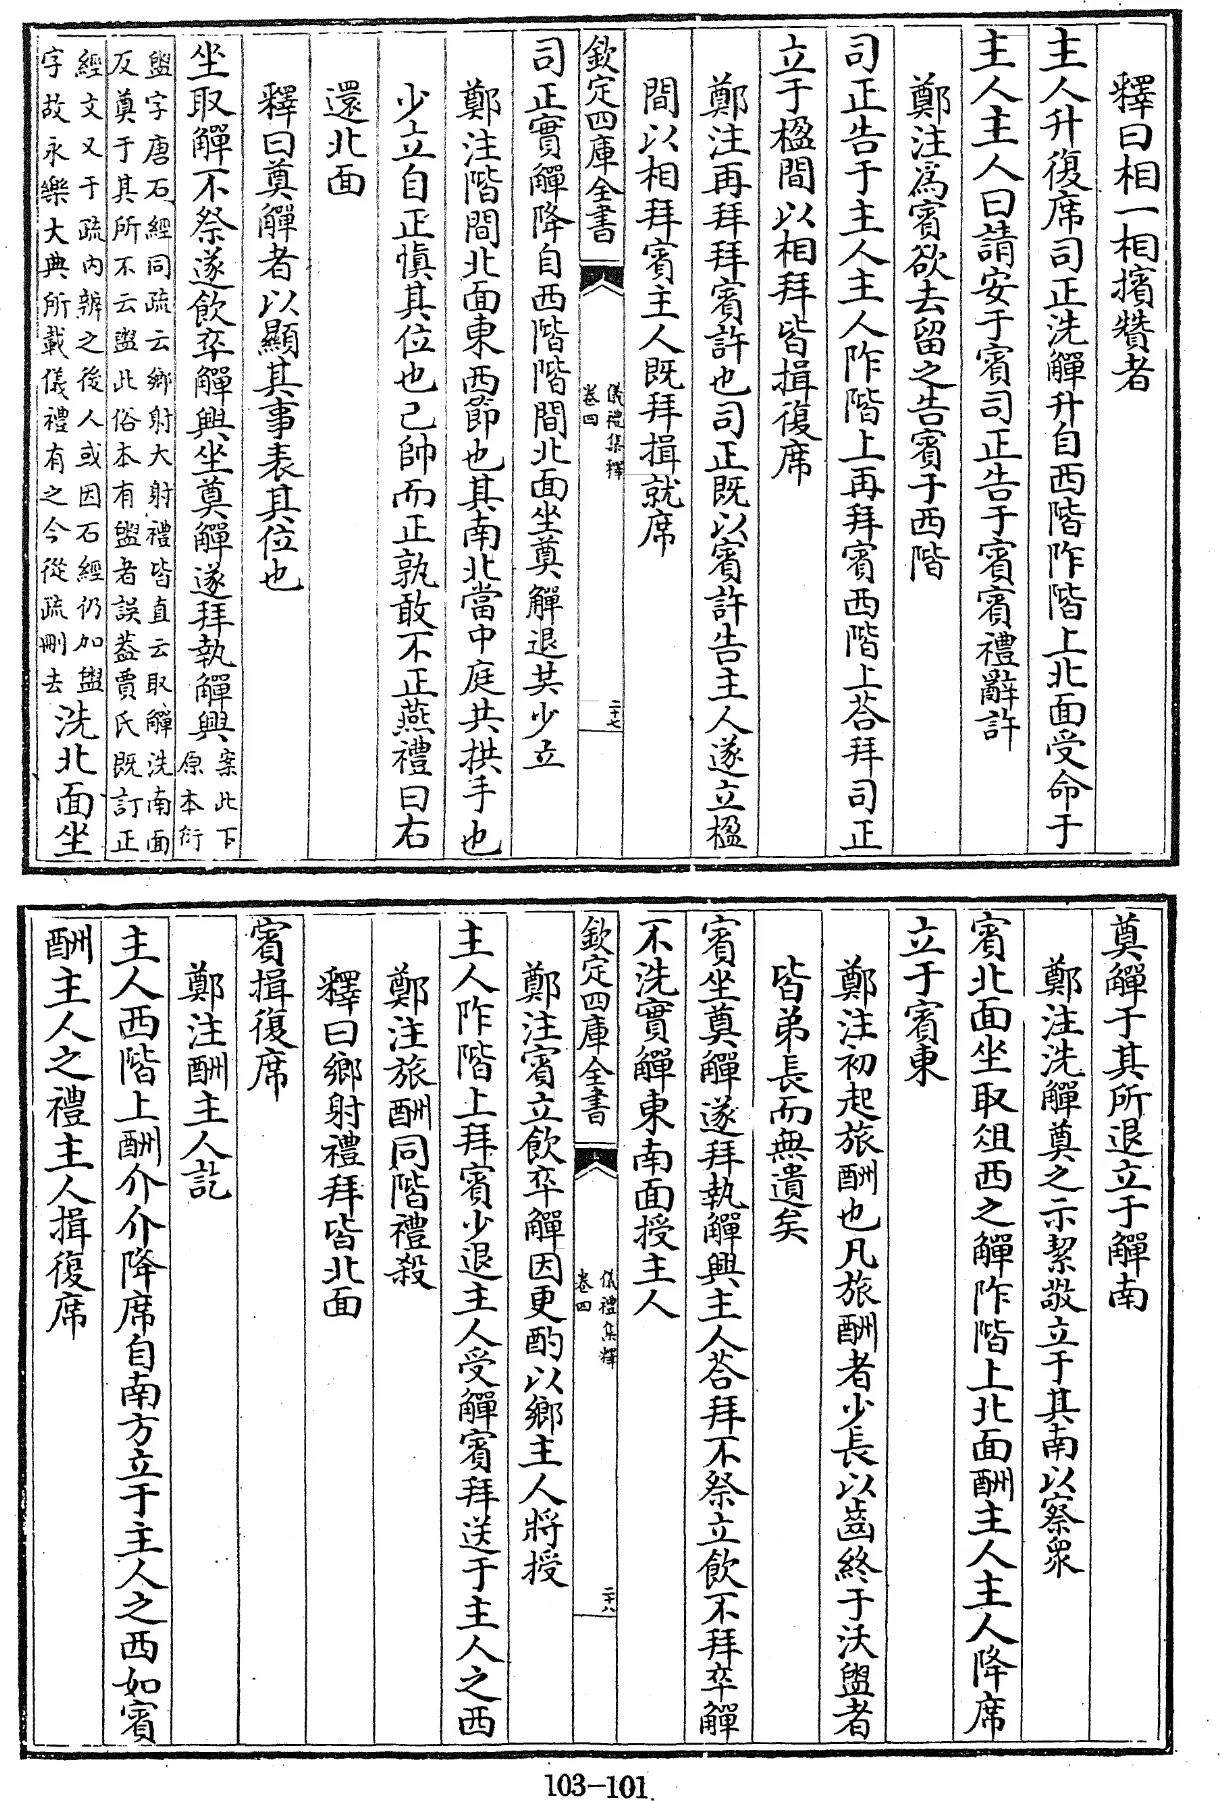 釋曰相一相擯贊者
主人升復席司正洗觶升自西階阼階上北面受命于
主人主人曰請安于賓司正告于賓賓禮辭許
鄭注為賓欲去留之告賓于西階
司正告于主人主人阼階上再拜賓西階上荅拜司正
立于楹間以相拜皆揖復席
鄭注再拜拜賓許也司正既以賓許告主人遂立楹
間以相拜賓主人既拜揖就席
欽定四庫全書
儀禮集釋
卷四
二十七
司正實觶降自西階階間北面坐奠觶退共少立
鄭注階間北面東西節也其南北當中庭共拱手也
少立自正慎其位也己帥而正孰敢不正燕禮曰右
還北面
釋曰奠觶者以顯其事表其位也
坐取觶不祭遂飲卒觶興坐奠觶遂拜執觶興
案此下
原本衍
盥字唐石經同疏云鄉射大射禮皆直云取觶洗南面
反奠于其所不云盥此俗本有盥者誤葢賈氏既訂正
經文又于疏內辨之後人或因石經仍加盥
字故永樂大典所載儀禮有之今從疏刪去
洗北面坐
奠觶于其所退立于觶南
鄭注洗觶奠之示絜敬立于其南以察衆
賓北面坐取俎西之觶阼階上北面酬主人主人降席
立于賓東
鄭注初起旅酬也凡旅酬者少長以齒終于沃盥者
皆弟長而無遺矣
賓坐奠觶遂拜執觶興主人荅拜不祭立飲不拜卒觶
不洗實觶東南面授主人
欽定四庫全書
儀禮集釋
卷四
二十八
鄭注賓立飲卒觶因更酌以鄉主人將授
主人阼階上拜賓少退主人受觶賓拜送于主人之西
鄭注旅酬同階禮殺
釋曰鄉射禮拜皆北面
賓揖復席
鄭注酬主人訖
主人西階上酬介介降席自南方立于主人之西如賓
酬主人之禮主人揖復席
103-101